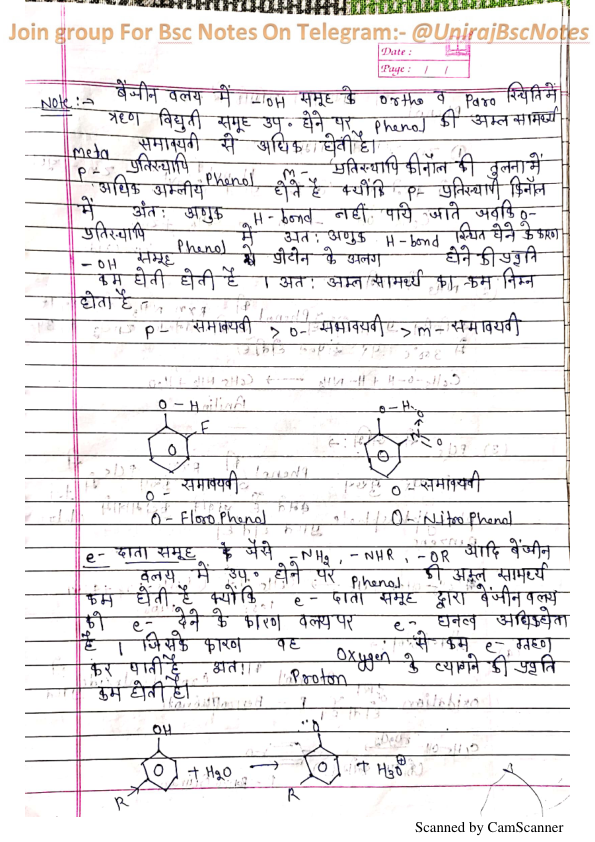 Join group For Bsc Notes On Telegram:- @UnirajBscNotes
Date :
Page : / /
Note :→ बेंजीन वलय में -OH समूह के ortho व Para स्थिति में
ऋण विद्युती समूह उप॰ होने पर Phenol की अम्ल सामर्थ्य
meta समावयवी से अधिक होती है।
P- प्रतिस्थापि Phenol m- प्रतिस्थापि फीनॉल की तुलना में
अधिक अम्लीय होते है क्योंकि P- प्रतिस्थापी फिनॉल
में अंतः अणुक H-bond नहीं पाये जाते जबकि o-
प्रतिस्थापि Phenol में अतः अणुक H-bond स्थित होने के कारण
-OH समूह से प्रोटोन के अलग होने की प्रवृति
कम होती होती है । अतः अम्ल सामर्थ्य का कम निम्न
होता है -
P- समावयवी > o- समावयवी > m- समावयवी
O - H
F
O - H
O
N
O
o- समावयवी
o- समावयवी
O- Floro Phenol
O- Nitro Phenol
e- दाता समूह के जैसे -NH2, -NHR, -OR आदि बेंजीन
वलय में उप॰ होने पर Phenol की अम्ल सामर्थ्य
कम होती है क्योंकि e- दाता समूह द्वारा बेंजीन वलय
को e- देने के कारण वलय पर e- घनत्व अधिक होता
है । जिसके कारण वह Oxygen से कम e- ग्रहण
कर पाती है अतः Proton के त्यागने की प्रवृति
कम होती है।
OH
O
R
+ H2O → + H3O⊕
R
Scanned by CamScanner